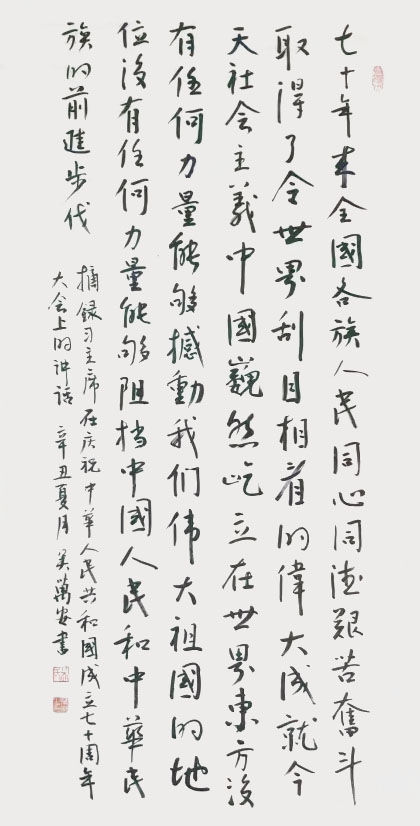 七十年来全國各族人民同心同德艱苦奮斗
取得了令世界刮目相看的偉大成就今
天社会主義中國巍然屹立在世界東方没
有任何力量能够撼動我们伟大祖國的地
位没有任何力量能够阻挡中國人民和中華民
族的前進步伐
摘録习主席在庆祝中华人民共和國成立七十周年
大会上的讲话 辛丑夏月 吴萬安書